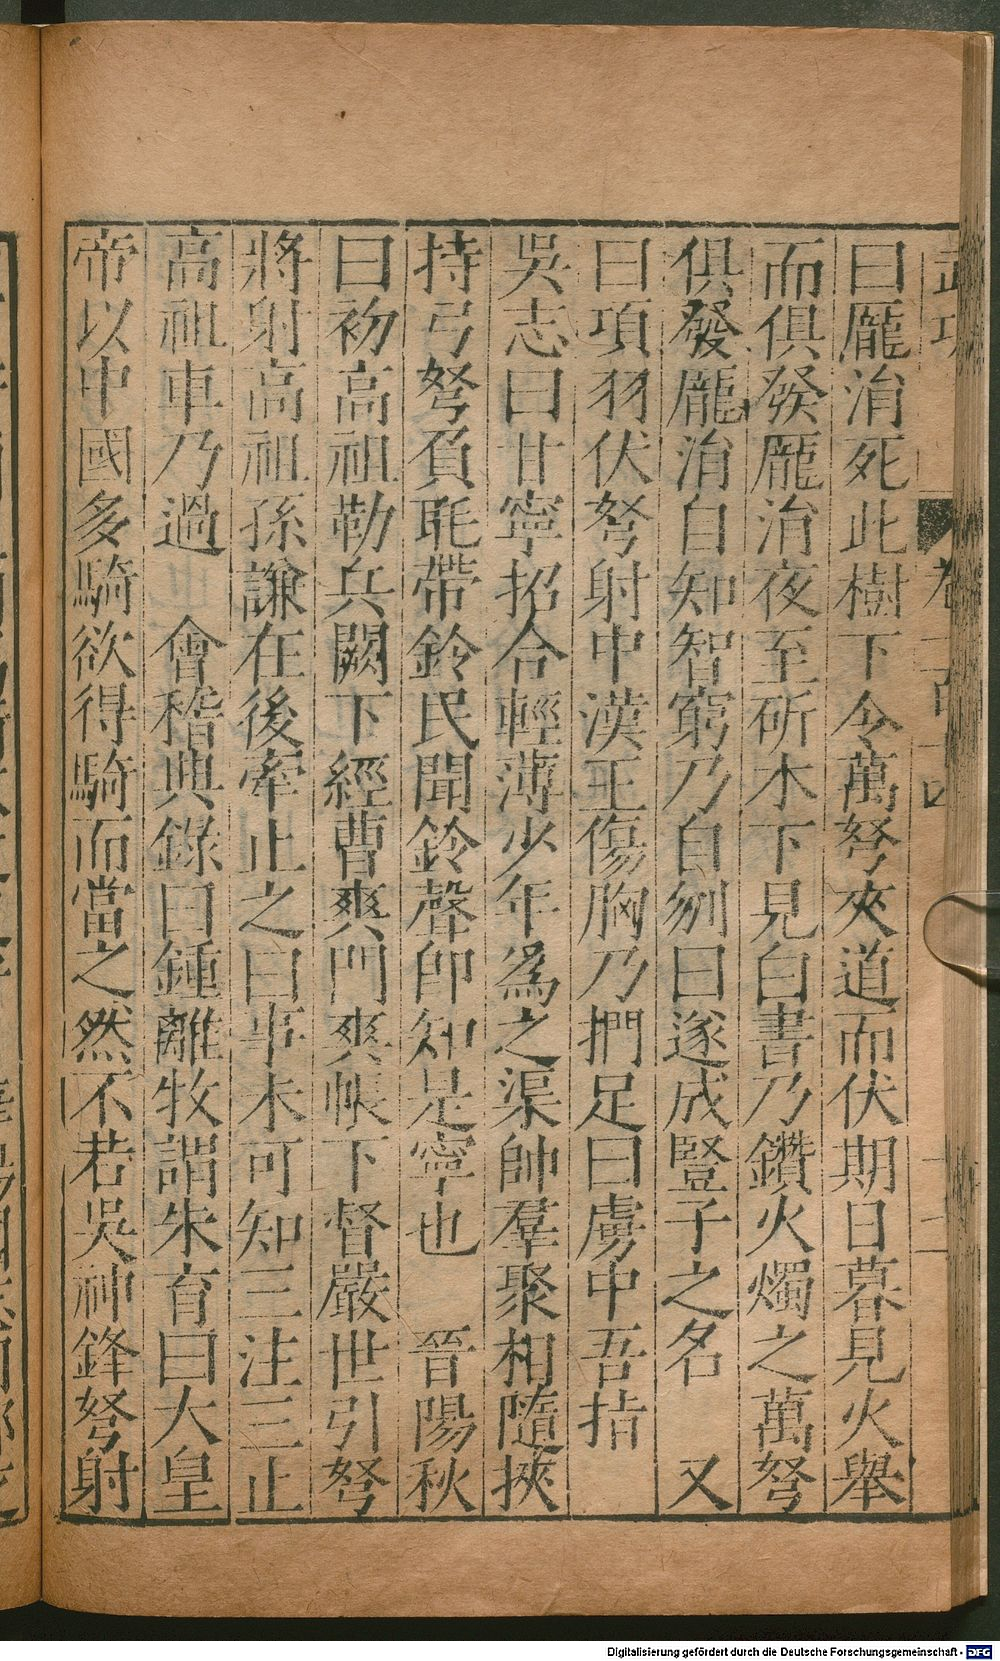 曰龐涓死此樹下令萬弩夾道而伏期日暮見火舉
而俱發龐涓夜至斫木下見白書乃鑽火燭之萬弩
俱發龐涓自知智窮乃自刎曰遂成豎子之名　又
曰項羽伏弩射中漢王傷胸乃捫足曰虜中吾指
吳志曰甘寧招合輕薄少年爲之渠帥羣聚相隨挾
持弓弩負毦帶鈴民聞鈴聲卽知是寧也　晉陽秋
曰初高祖勒兵闕下經曹爽門爽帳下督嚴世引弩
將射高祖孫謙在後牽止之曰事未可知三注三止
高祖車乃過　會稽典錄曰鍾離牧謂朱育曰大皇
帝以中國多騎欲得騎而當之然不若吳神鋒弩射
Digitalisierung gefördert durch die Deutsche Forschungsgemeinschaft - DFG